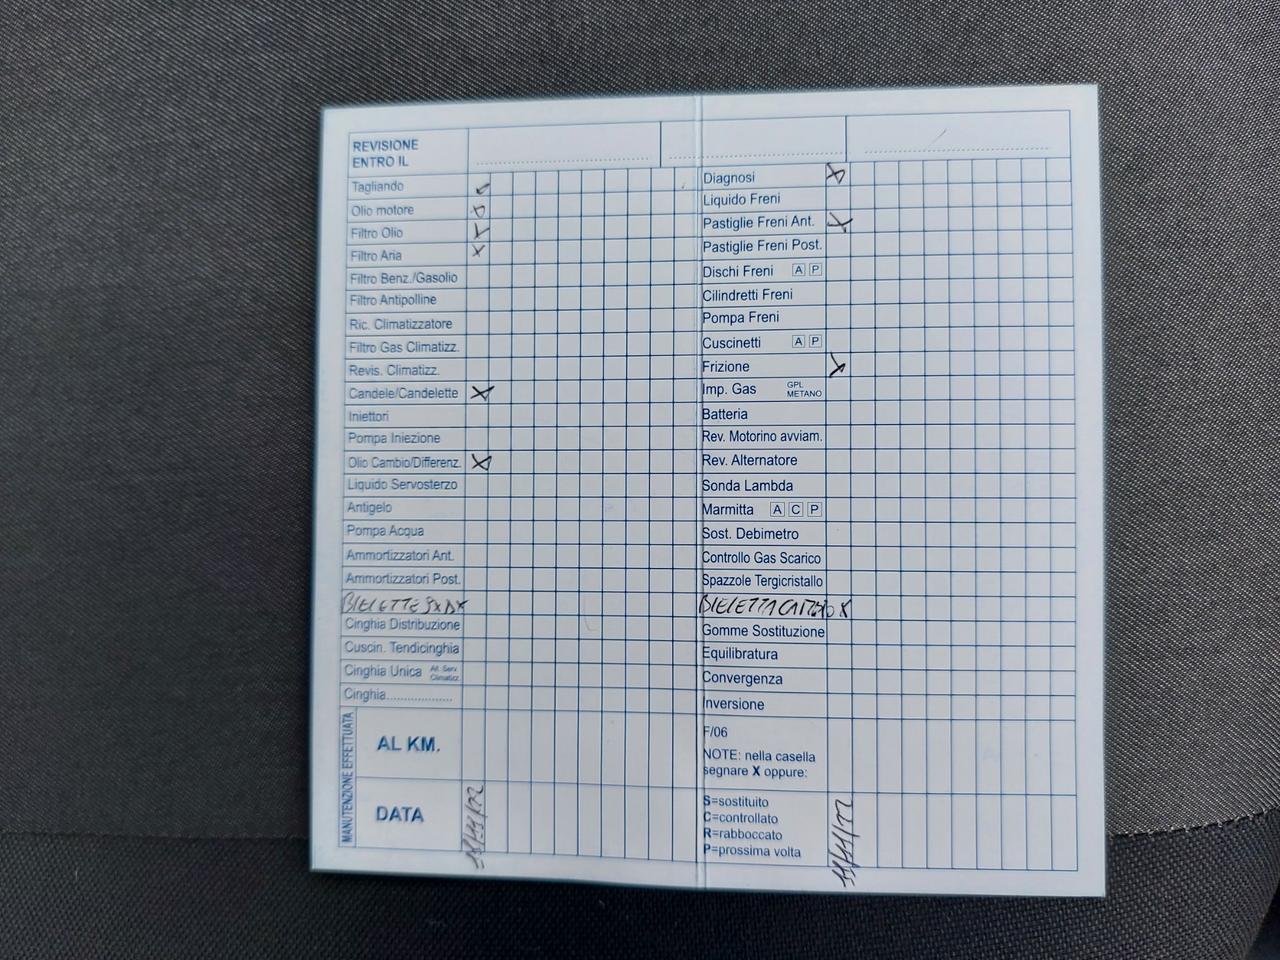 REVISIONE
ENTRO IL
Tagliando
Olio motore X
Filtro Olio X
Filtro Aria X
Filtro Benz./Gasolio
Filtro Antipolline
Ric. Climatizzatore
Filtro Gas Climatizz.
Revis. Climatizz.
Candele/Candelette X
Iniettori
Pompa Iniezione
Olio Cambio/Differenz. X
Liquido Servosterzo
Antigelo
Pompa Acqua
Ammortizzatori Ant.
Ammortizzatori Post.
BIELETTE SX DX
Cinghia Distribuzione
Cuscin. Tendicinghia
Cinghia Unica Alt. Serv. Climatizz.
Cinghia...................
MANUTENZIONE EFFETTUATA
AL KM.
DATA 11/11/22
Diagnosi X
Liquido Freni
Pastiglie Freni Ant. X
Pastiglie Freni Post.
Dischi Freni A P
Cilindretti Freni
Pompa Freni
Cuscinetti A P
Frizione X
Imp. Gas GPL METANO
Batteria
Rev. Motorino avviam.
Rev. Alternatore
Sonda Lambda
Marmitta A C P
Sost. Debimetro
Controllo Gas Scarico
Spazzole Tergicristallo
BIELETTA CAMBIO X
Gomme Sostituzione
Equilibratura
Convergenza
Inversione
F/06
NOTE: nella casella
segnare X oppure:
S=sostituito
C=controllato
R=rabboccato
P=prossima volta
11/11/22